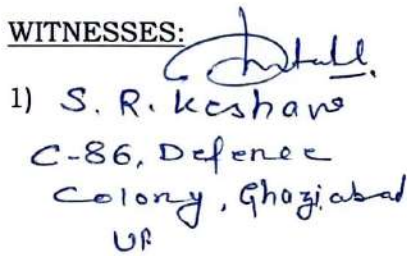 WITNESSES:
1) S. R. Keshav
C-86, Defence
Colony, Ghaziabad
UP